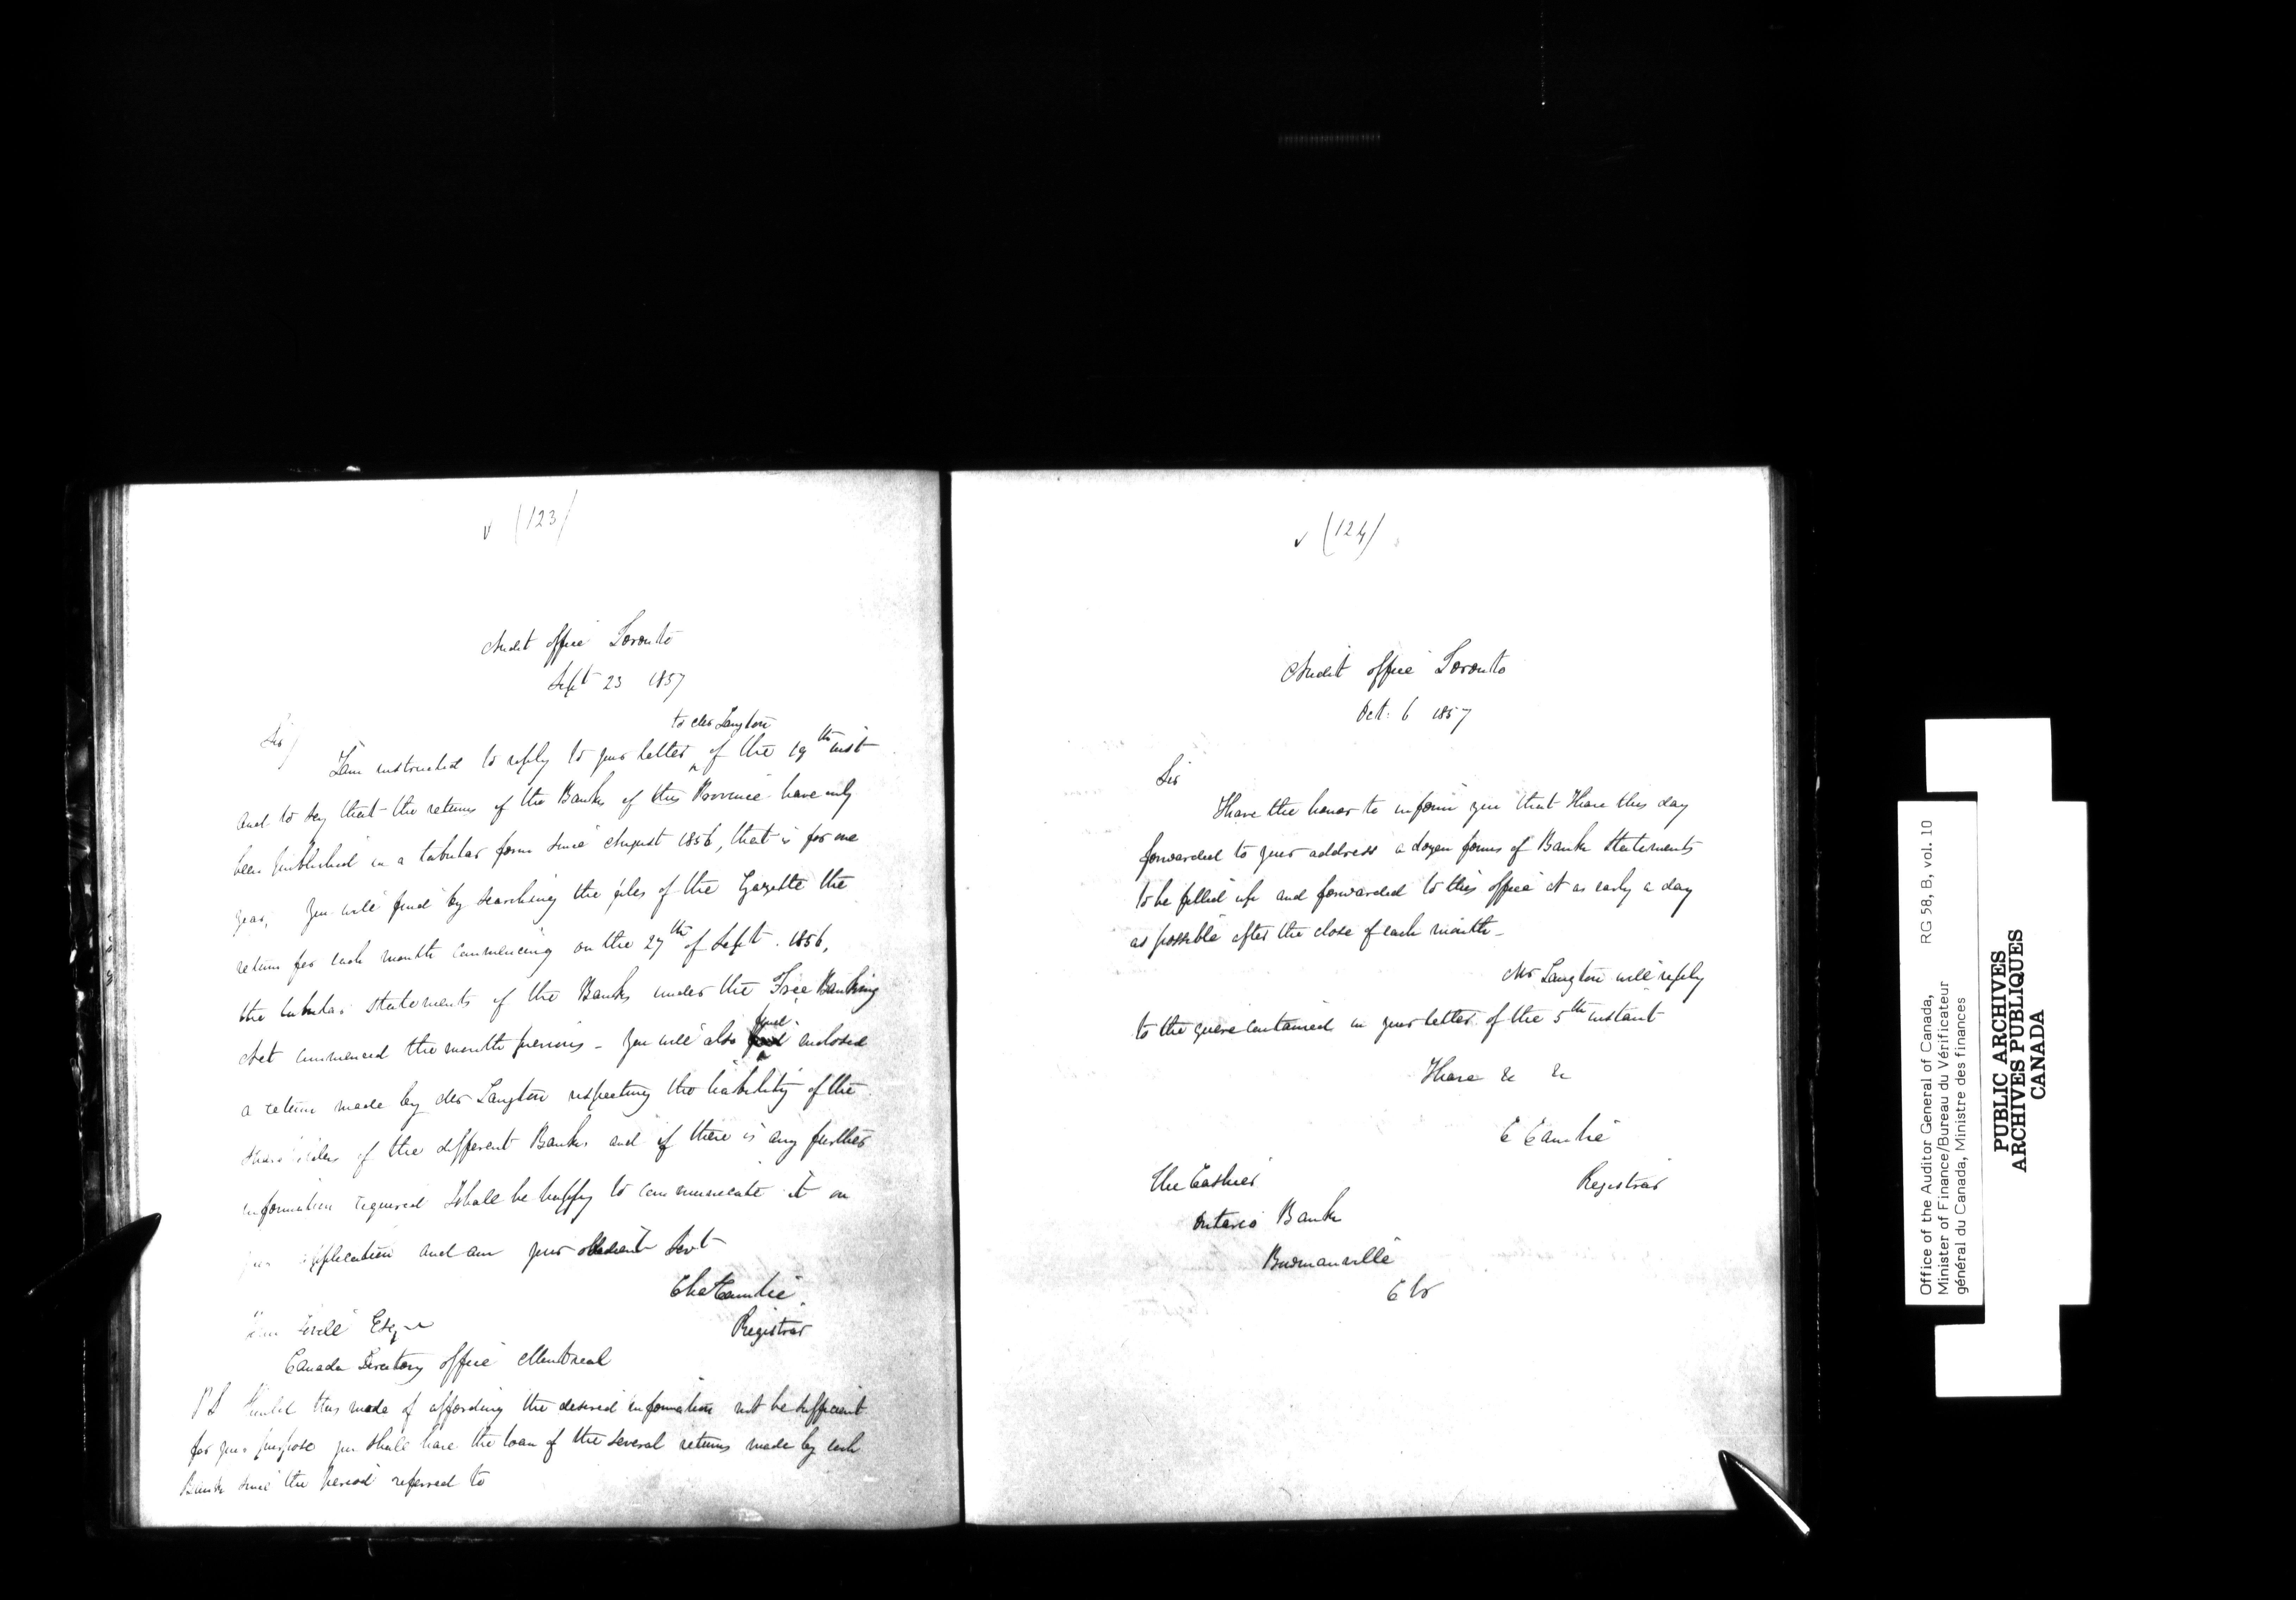 (123)
Audit Office Toronto
Sept 23 1857
Sir
to Mr Langton
I am instructed to reply to your letter of the 19th inst
and to say that the returns of the Banks of this Province have only
been published in a tabular form since August 1856, that is for one
year, You will find by searching the files of the Gazette the
return for each month commencing on the 27th of Sept. 1856,
the tabular statements of the Banks under the Free Banking
Act commenced the month previous - You will also find enclosed
a return made by Mr Langton respecting the liability of the
shareholders of the different Banks and if there is any further
information required I shall be happy to communicate it on
your application and am your obedient Servt
Registrar
Esqre
Canada Directory Office Montreal
PS Should this mode of affording the desired information not be sufficient
for your purpose you shall have the loan of the several returns made by each
Bank since the period referred to
(124)
Audit Office Toronto
Oct. 6 1857
Sir
I have the honor to inform you that I have this day
forwarded to your address a dozen forms of Bank Statements
to be filled up and forwarded to this office at as early a day
as possible after the close of each month -
Mr Langton will reply
to the quere contained in your letter of the 5th instant
I have &c &c
E
Registrar
The Cashier
Ontario Bank
Bowmanville
C W
Office of the Auditor General of Canada,
Minister of Finance/Bureau du Vérificateur
général du Canada, Ministre des finances
RG 58, B, vol. 10
PUBLIC ARCHIVES
ARCHIVES PUBLIQUES
CANADA